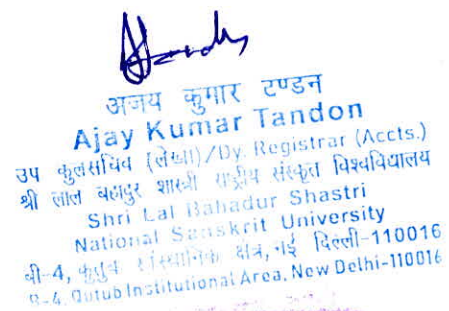 अजय कुमार टण्डन
Ajay Kumar Tandon
उप कुलसचिव (लेखा)/Dy. Registrar (Accts.)
श्री लाल बहादुर शास्त्री राष्ट्रीय संस्कृत विश्वविद्यालय
Shri Lal Bahadur Shastri
National Sanskrit University
बी-4, कुतुब सांस्थानिक क्षेत्र, नई दिल्ली-110016
B-4, Qutub Institutional Area, New Delhi-110016